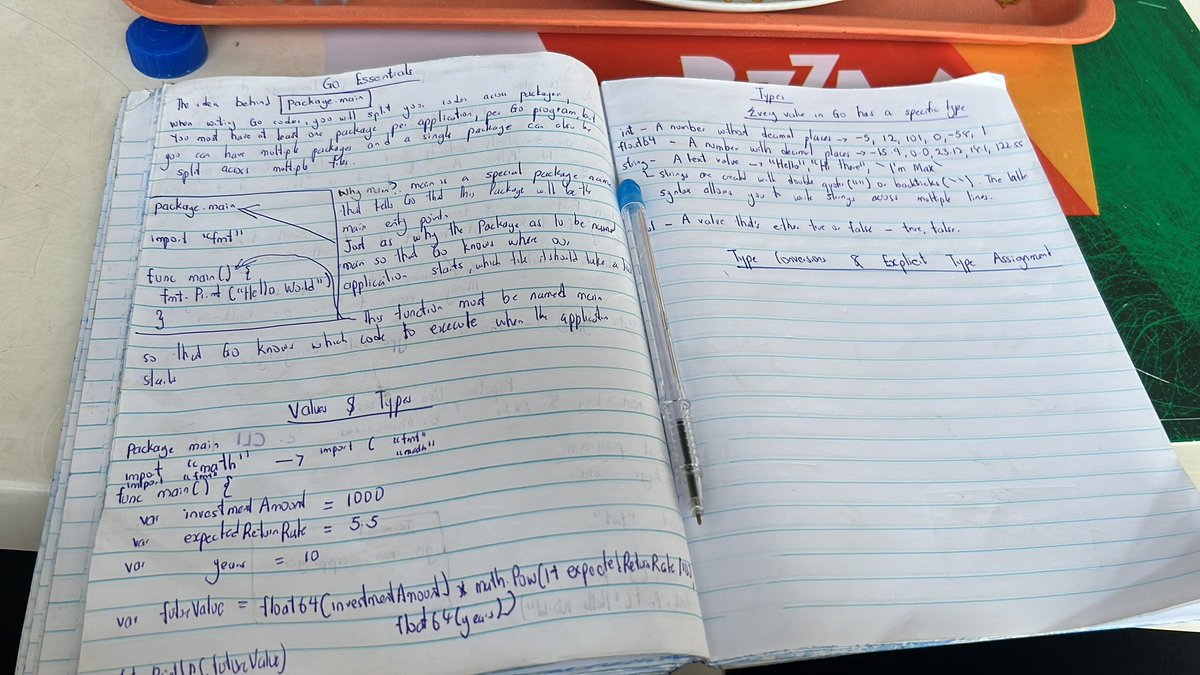 Go Essentials
The idea behind package.main
when writing Go codes, you will split your codes across packages,
You must have at least one package, per application, per Go program, but
you can have multiple packages and a single package can also be
split across multiple files.
package.main
import "fmt"
func main() {
fmt.Print ("Hello World")
}
Why main? main is a special package name
that tells Go that this package will be the
main entry point.
Just as why the Package as to be named
main so that Go knows where our
application starts, which file it should take a
This function must be named main
so that Go knows which code to execute when the application
starts
Values & Types
Package main
import "math" → import ( "fmt"
import "fmt" "math"
func main() {
var investmentAmount = 1000
var expectedReturnRate = 5.5
var years = 10
var futureValue = float64(investmentAmount) * math.Pow(1+ expectedReturnRate/100,
float64(years))
(futureValue)
Types
Every value in Go has a specific type
int - A number without decimal places → -5, 12, 101, 0, -54, 1
float64 - A number with decimal places →
string - A text value → "Hello", "Hi there", `I'm Max
strings are created with double quotes (" ") or backticks (` `). The latter
syntax allows you to write strings across multiple lines.
- A value that's either true or false - true, false.
Type Conversions & Explicit Type Assignment